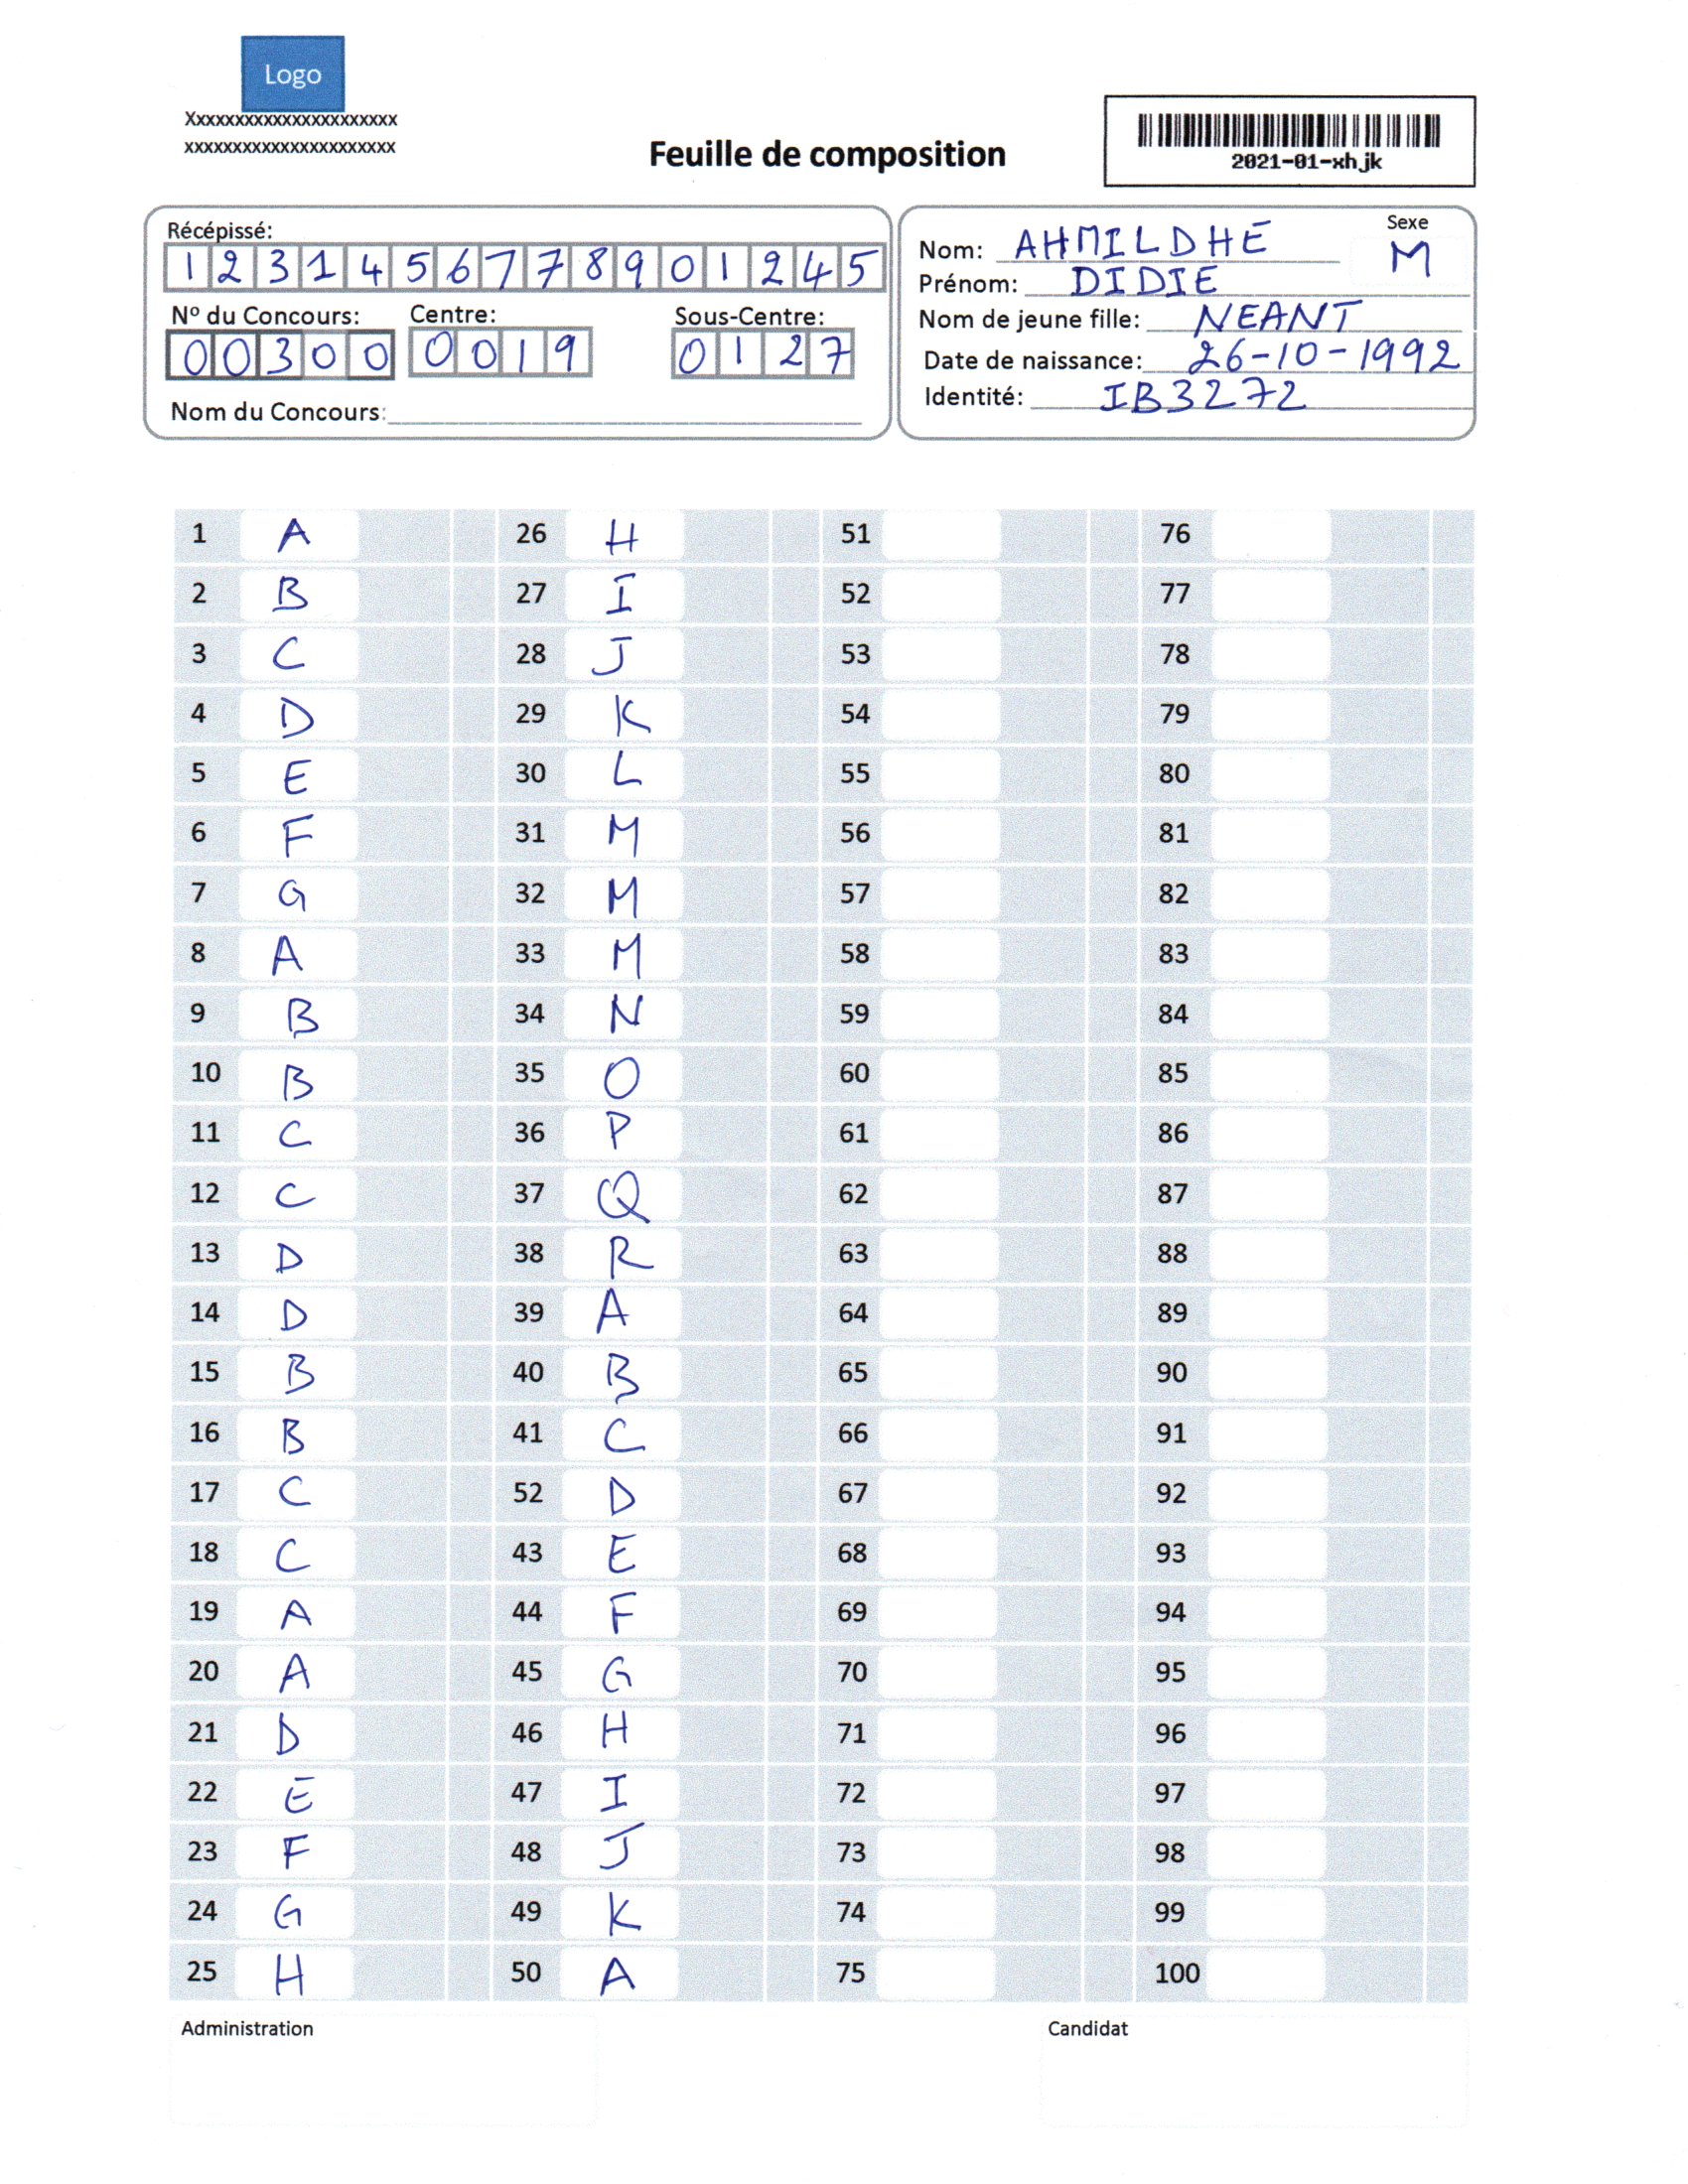 Logo
Xxxxxxxxxxxxxxxxxxxxxx
xxxxxxxxxxxxxxxxxxxxxx
Feuille de composition
2021-01-xhjk
Récépissé:
1 2 3 1 4 5 6 7 7 8 9 0 1 2 4 5
Nº du Concours: Centre: Sous-Centre:
0 0 3 0 0 0 0 1 9 0 1 2 7
Nom du Concours:
Sexe
Nom: AHMILDHE M
Prénom: DIDIE
Nom de jeune fille: NEANT
Date de naissance: 26-10-1992
Identité: IB3272
1 A 26 H 51 76
2 B 27 I 52 77
3 C 28 J 53 78
4 D 29 K 54 79
5 E 30 L 55 80
6 F 31 M 56 81
7 G 32 M 57 82
8 A 33 M 58 83
9 B 34 N 59 84
10 B 35 O 60 85
11 C 36 P 61 86
12 C 37 Q 62 87
13 D 38 R 63 88
14 D 39 A 64 89
15 B 40 B 65 90
16 B 41 C 66 91
17 C 52 D 67 92
18 C 43 E 68 93
19 A 44 F 69 94
20 A 45 G 70 95
21 D 46 H 71 96
22 E 47 I 72 97
23 F 48 J 73 98
24 G 49 K 74 99
25 H 50 A 75 100
Administration Candidat